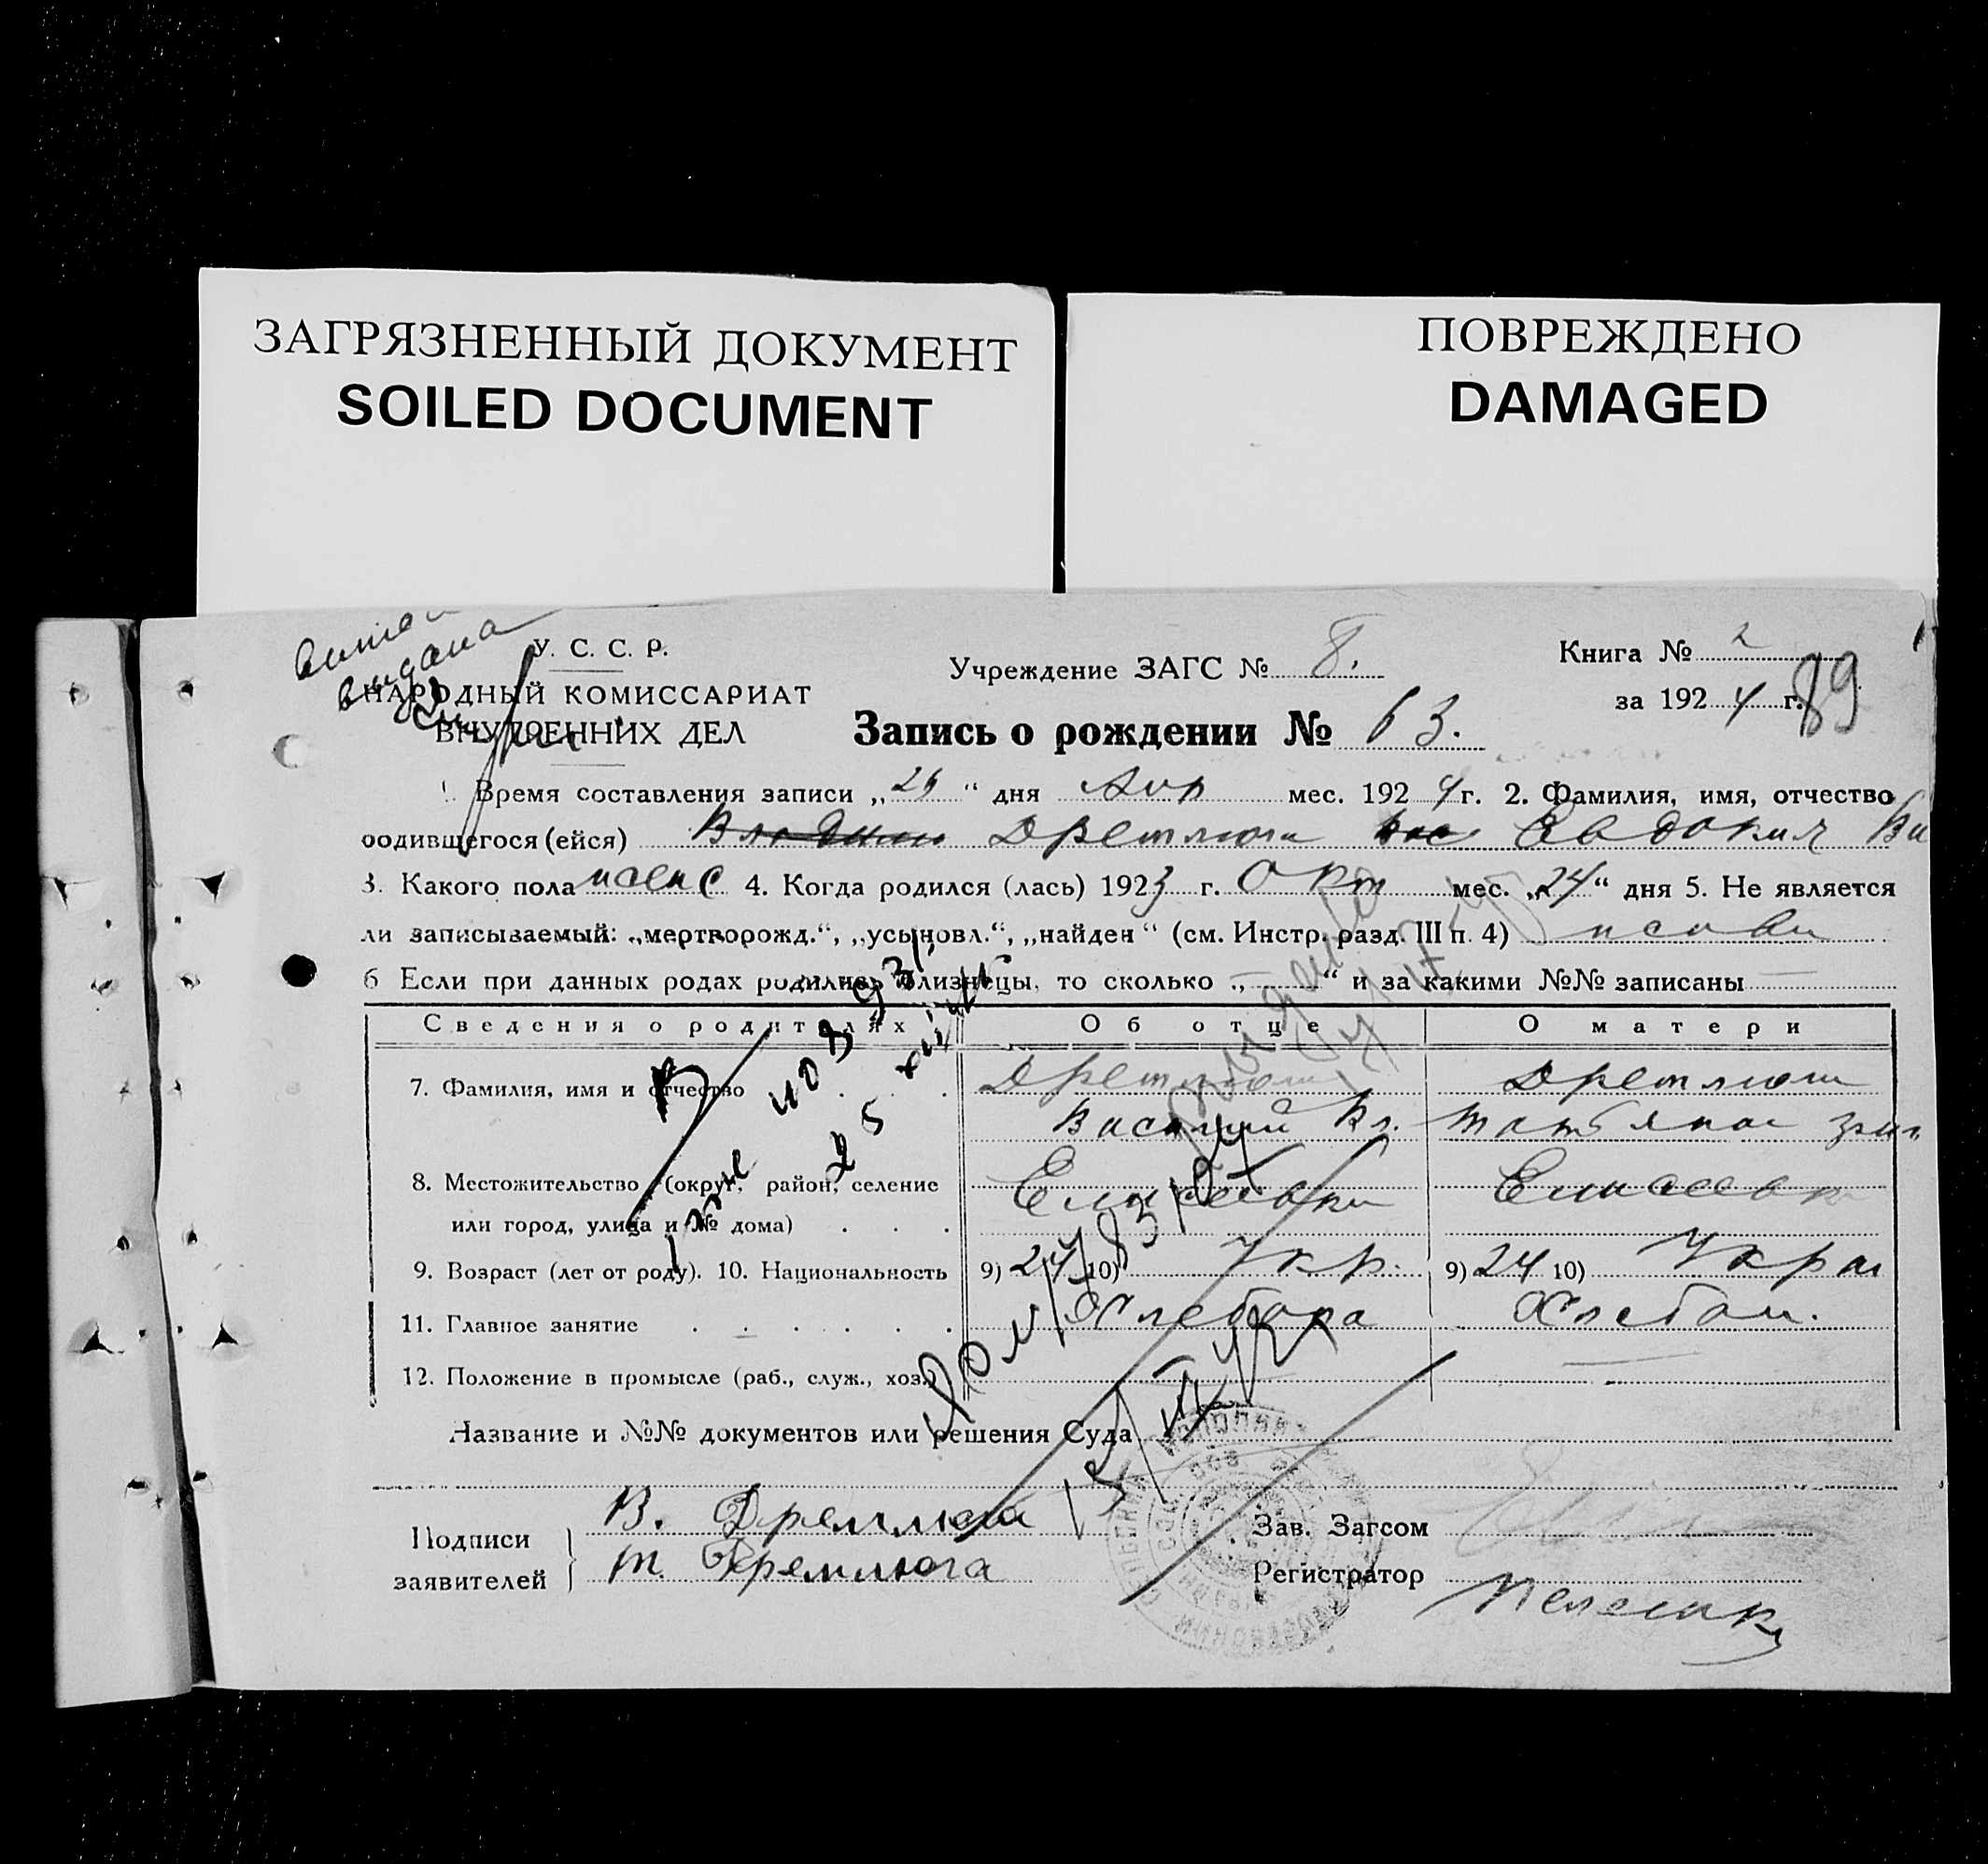 ЗАГРЯЗНЕННЫЙ ДОКУМЕНТ
SOILED DOCUMENT
ПОВРЕЖДЕНО
DAMAGED
У. С. С. Р.
НАРОДНЫЙ КОМИССАРИАТ
ВНУТРЕННИХ ДЕЛ
Учреждение ЗАГС № 8.
Книга № 2
за 1924 г.
89
Запись о рождении № 63.
Время составления записи „26“ дня Апр мес. 1924 г. 2. Фамилия, имя, отчество
родившегося (ейся) Дремлюга Евдокия Ва
3. Какого пола женс 4. Когда родился (лась) 1923 г. Окт мес. „24“ дня 5. Не является
ли записываемый: „мертворожд.“, „усыновл.“, „найден“ (см. Инстр. разд. III п. 4)
6 Если при данных родах родились близнецы, то сколько „—“ и за какими №№ записаны —
Сведения о родителях Об отце О матери
7. Фамилия, имя и отчество Дремлюга Дремлюга
Василий Вл. Татьяна
8. Местожительство (округ, район, селение Елисеевка Елисеевка
или город, улица и № дома)
9. Возраст (лет от роду). 10. Национальность 9) 24 10) Укр. 9) 24 10) Украи
11. Главное занятие Хлебора Хлебоп.
12. Положение в промысле (раб., служ., хоз.)
Название и №№ документов или решения Суда
Подписи
заявителей
В. Дремлюга
Т. Дремлюга
Зав. Загсом
Регистратор